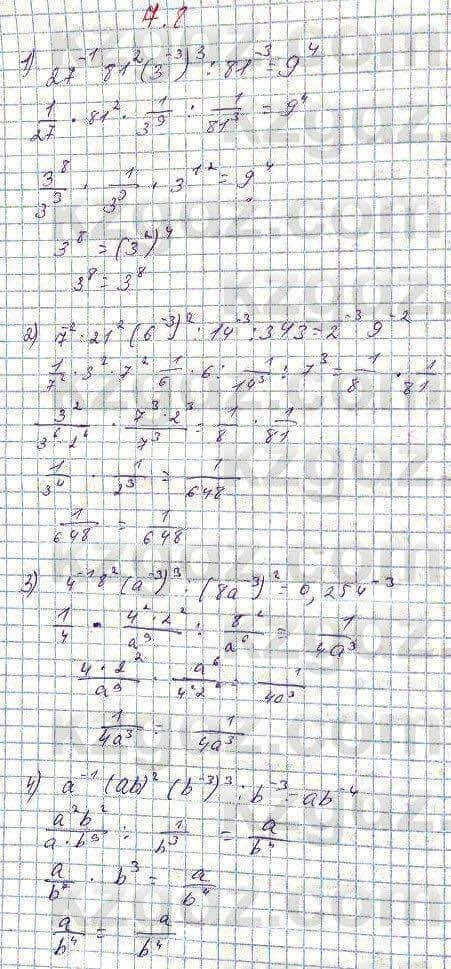 7.8
1) 27^-1 · 81^2 (3^-3)^3 : 81^-3 = 9^4
1/27 · 81^2 · 1/3^9 : 1/81^3 = 9^4
3^8/3^3 · 1/3^9 · 3^12 = 9^4
3^8 = (3^2)^4
3^8 = 3^8
2) 7^-2 · 21^2 (6^-3)^2 : 14^-3 : 343 = 2^-3 9^-2
1/7^2 · 3^2 · 7^2 · 1/6 · 6 : 1/14^3 : 7^3 = 1/8 · 1/81
3^2/3^6·2^6 · 7^3·2^3/7^3 = 1/8 · 1/81
1/3^4 · 1/2^3 = 1/648
1/648 = 1/648
3) 4^-1 8^2 (a^-3)^3 : (8a^-3)^2 = 0,25a^-3
1/4 · 4^2·2^2/a^9 : 8^2/a^6 = 1/4a^3
4·2^2/a^9 · a^6/4^2 2 = 1/4a^3
1/4a^3 = 1/4a^3
4) a^-1 (ab)^2 (b^-3)^3 : b^-3 = ab^-4
a^2b^2/a·b^9 : 1/b^3 = a/b^4
a/b^7 · b^3 = a/b^4
a/b^4 = a/b^4
kzgoz.com